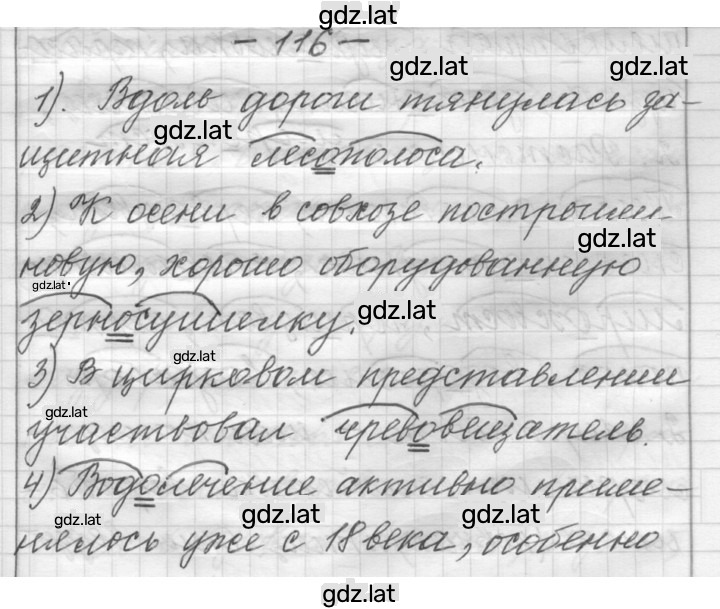 gdz.lat
- 116 -
gdz.lat gdz.lat
1). Вдоль дороги тянулась за-
gdz.lat
щитная лесополоса.
2) К осени в совхозе построили
gdz.lat
новую, хорошо оборудованную
gdz.lat
зерносушилку.
gdz.lat
gdz.lat
3) В цирковом представлении
gdz.lat
участвовал чревовещатель.
4) Водолечение активно приме-
gdz.lat gdz.lat gdz.lat
нялось уже с 18 века, особенно
gdz.lat